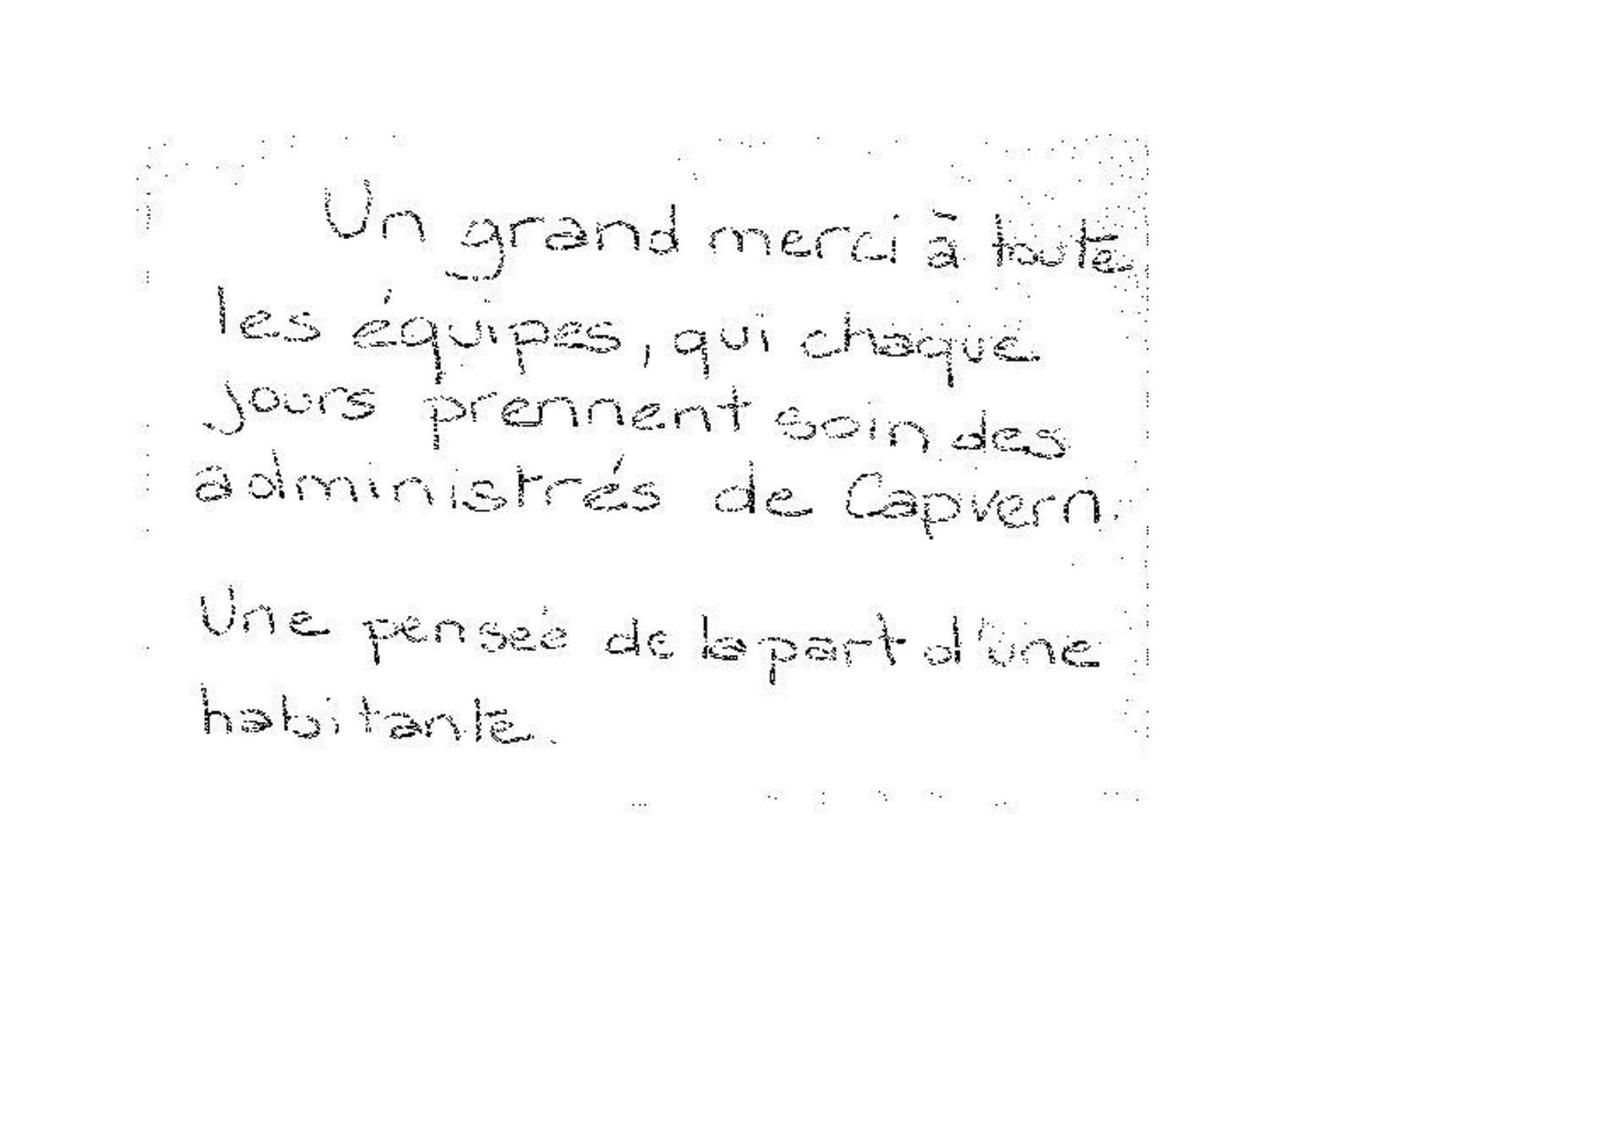 Un grand merci à toute
les équipes, qui chaque
jours prennent soin des
administrés de Capvern.
Une pensée de la part d'une
habitante.